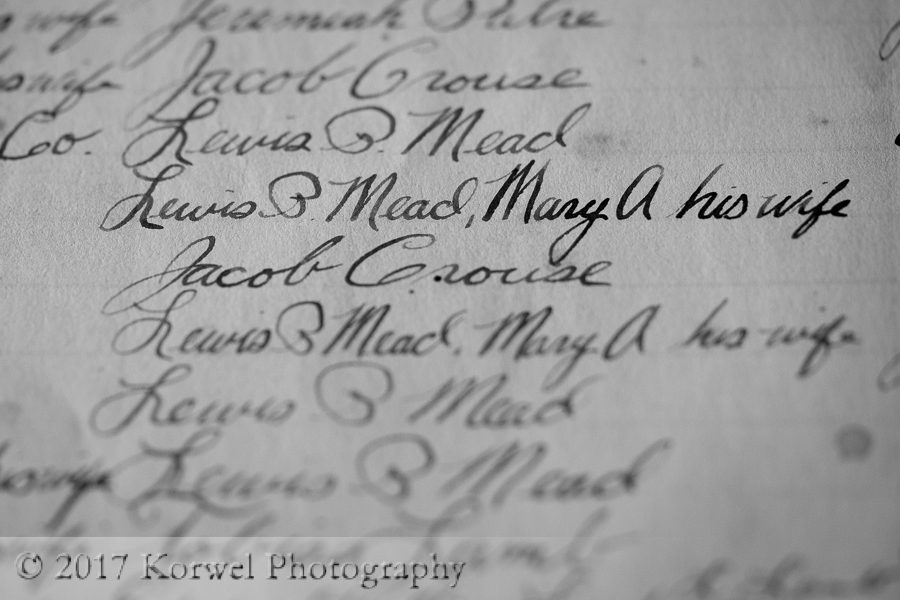 wife Jeremiah
his wife Jacob Crouse
Co. Lewis P. Mead
Lewis P. Mead, Mary A his wife
Jacob Crouse
Lewis P Mead, Mary A his wife
Lewis P Mead
his wife Lewis P Mead
© 2017 Korwel Photography